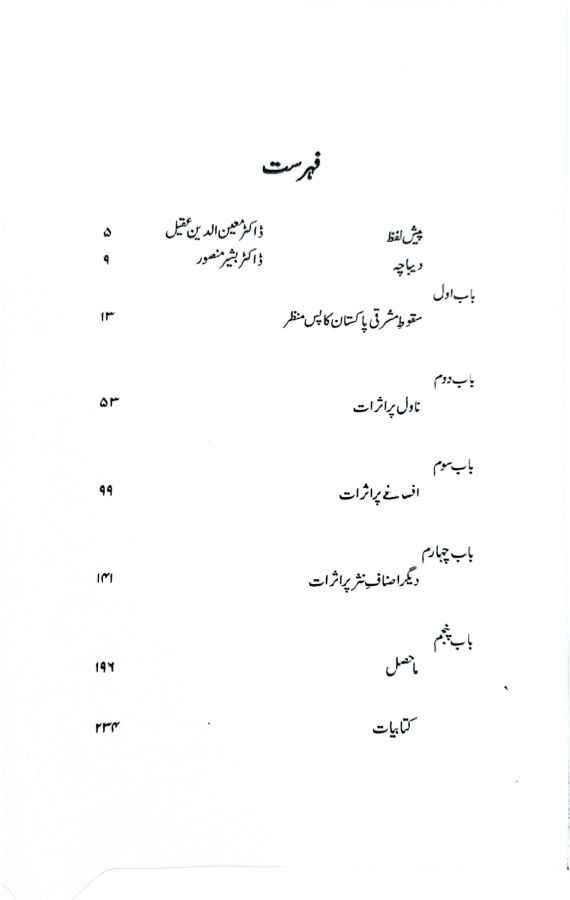 فہرست
پیش لفظ ڈاکٹر معین الدین عقیل ۵
دیباچہ ڈاکٹر بشیر منصور ۹
باب اول
سقوطِ مشرقی پاکستان کا پس منظر ۱۳
باب دوم
ناول پر اثرات ۵۳
باب سوم
افسانے پر اثرات ۹۹
باب چہارم
دیگر اصنافِ نثر پر اثرات ۱۴۱
باب پنجم
ماحصل ۱۹۶
کتابیات ۲۳۴